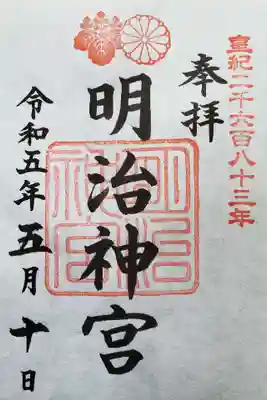 皇紀二千六百八十三年
奉拝
明治神宮
令和五年五月十日
明治神宮